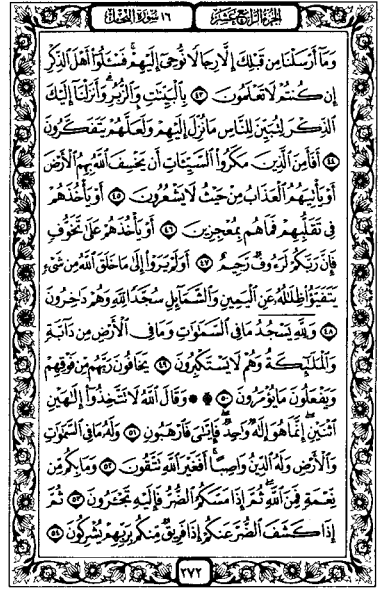 الجزء الرابع عشر ١٦ سورة النحل
وَمَآ أَرْسَلْنَا مِن قَبْلِكَ إِلَّا رِجَالًا نُّوحِىٓ إِلَيْهِمْ ۚ فَسْـَٔلُوٓا۟ أَهْلَ ٱلذِّكْرِ
إِن كُنتُمْ لَا تَعْلَمُونَ ٤٣ بِٱلْبَيِّنَـٰتِ وَٱلزُّبُرِ ۗ وَأَنزَلْنَآ إِلَيْكَ
ٱلذِّكْرَ لِتُبَيِّنَ لِلنَّاسِ مَا نُزِّلَ إِلَيْهِمْ وَلَعَلَّهُمْ يَتَفَكَّرُونَ
٤٤ أَفَأَمِنَ ٱلَّذِينَ مَكَرُوا۟ ٱلسَّيِّـَٔاتِ أَن يَخْسِفَ ٱللَّهُ بِهِمُ ٱلْأَرْضَ
أَوْ يَأْتِيَهُمُ ٱلْعَذَابُ مِنْ حَيْثُ لَا يَشْعُرُونَ ٤٥ أَوْ يَأْخُذَهُمْ
فِى تَقَلُّبِهِمْ فَمَا هُم بِمُعْجِزِينَ ٤٦ أَوْ يَأْخُذَهُمْ عَلَىٰ تَخَوُّفٍ
فَإِنَّ رَبَّكُمْ لَرَءُوفٌ رَّحِيمٌ ٤٧ أَوَلَمْ يَرَوْا۟ إِلَىٰ مَا خَلَقَ ٱللَّهُ مِن شَىْءٍ
يَتَفَيَّؤُا۟ ظِلَـٰلُهُۥ عَنِ ٱلْيَمِينِ وَٱلشَّمَآئِلِ سُجَّدًا لِّلَّهِ وَهُمْ دَٰخِرُونَ
٤٨ وَلِلَّهِ يَسْجُدُ مَا فِى ٱلسَّمَـٰوَٰتِ وَمَا فِى ٱلْأَرْضِ مِن دَآبَّةٍ
وَٱلْمَلَـٰٓئِكَةُ وَهُمْ لَا يَسْتَكْبِرُونَ ٤٩ يَخَافُونَ رَبَّهُم مِّن فَوْقِهِمْ
وَيَفْعَلُونَ مَا يُؤْمَرُونَ ۩ ٥٠ ۞ وَقَالَ ٱللَّهُ لَا تَتَّخِذُوٓا۟ إِلَـٰهَيْنِ
ٱثْنَيْنِ ۖ إِنَّمَا هُوَ إِلَـٰهٌ وَٰحِدٌ ۖ فَإِيَّـٰىَ فَٱرْهَبُونِ ٥١ وَلَهُۥ مَا فِى ٱلسَّمَـٰوَٰتِ
وَٱلْأَرْضِ وَلَهُ ٱلدِّينُ وَاصِبًا ۚ أَفَغَيْرَ ٱللَّهِ تَتَّقُونَ ٥٢ وَمَا بِكُم مِّن
نِّعْمَةٍ فَمِنَ ٱللَّهِ ۖ ثُمَّ إِذَا مَسَّكُمُ ٱلضُّرُّ فَإِلَيْهِ تَجْـَٔرُونَ ٥٣ ثُمَّ
إِذَا كَشَفَ ٱلضُّرَّ عَنكُمْ إِذَا فَرِيقٌ مِّنكُم بِرَبِّهِمْ يُشْرِكُونَ ٥٤
٢٧٢